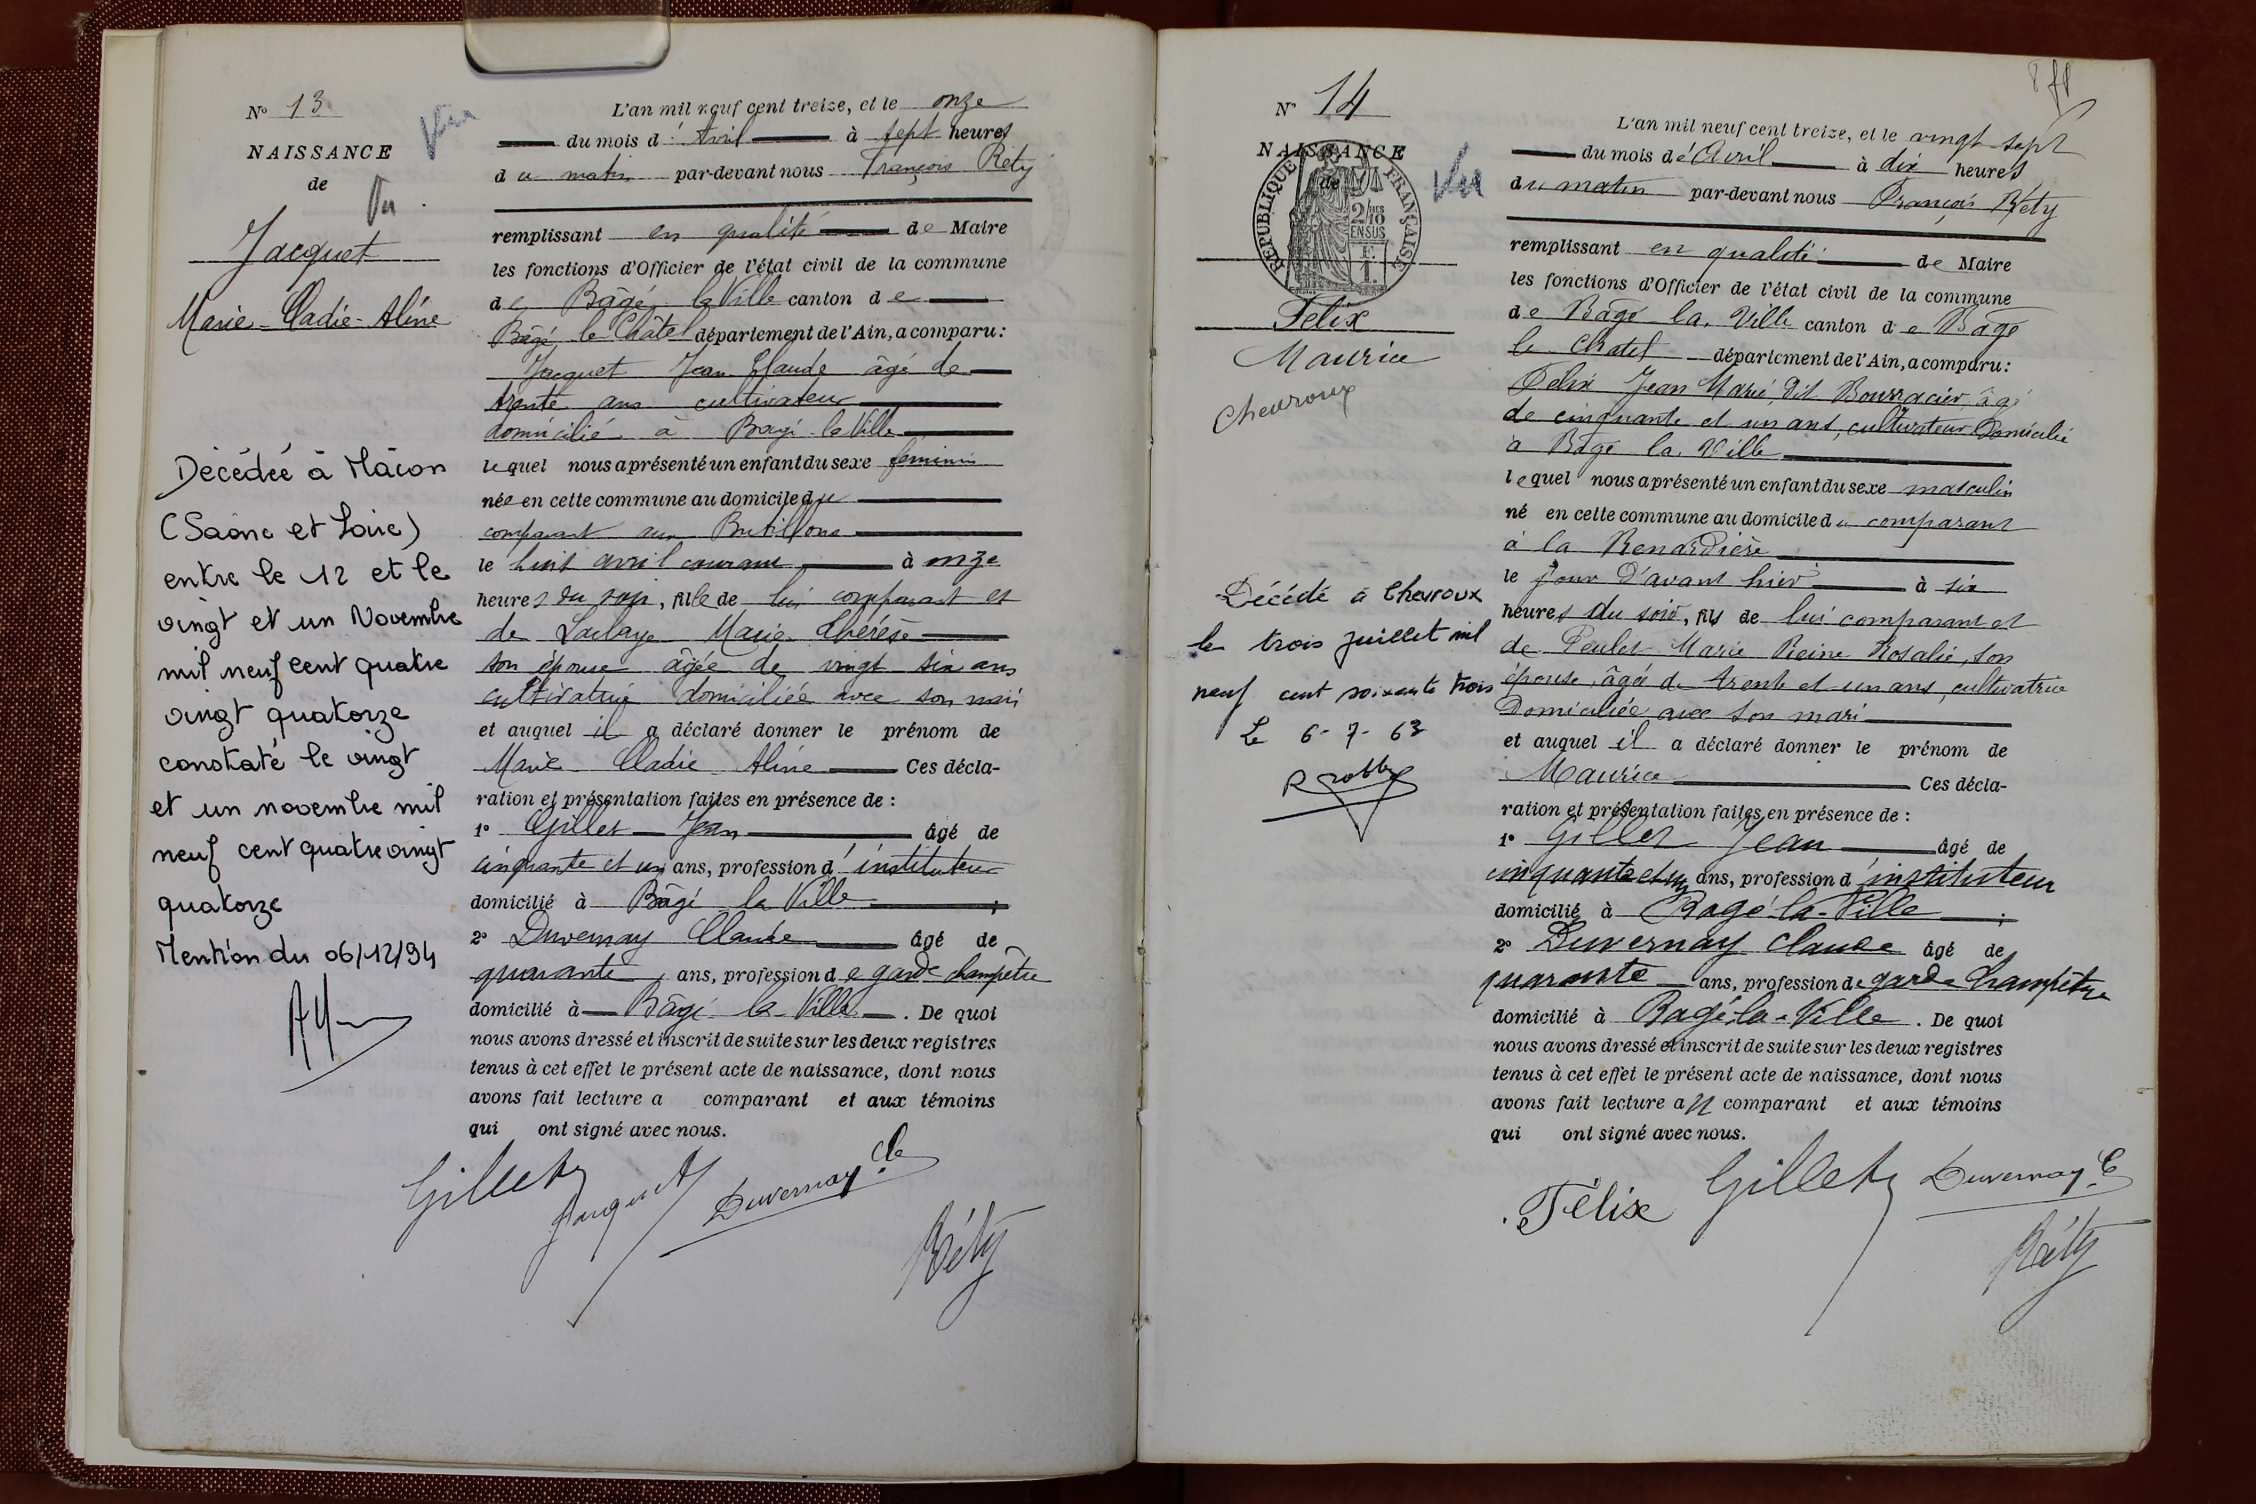 N° 13
NAISSANCE
de
Vu
Vu
Jacquet
Marie-Cladie-Aline
Décédée à Mâcon
(Saône et Loire)
entre le 12 et le
vingt et un Novembre
mil neuf cent quatre
vingt quatorze
constaté le vingt
et un novembre mil
neuf cent quatre vingt
quatorze
Mention du 06/12/94
L'an mil neuf cent treize, et le onze
du mois d'Avril à sept heures
du matin par-devant nous François Réty
remplissant en qualité de Maire
les fonctions d'Officier de l'état civil de la commune
de Bâgé la Ville canton de
Bâgé le Châtel département de l'Ain, a comparu :
Jacquet Jean Claude âgé de
trente ans cultivateur
domicilié à Bâgé-la-Ville
lequel nous a présenté un enfant du sexe féminin
née en cette commune au domicile du
comparant aux
le huit avril courant à onze
heures du soir, fille de lui comparant et
de Marie Thérèse
son épouse âgée de vingt six ans
cultivatrice domiciliée avec son mari
et auquel il a déclaré donner le prénom de
Marie Cladie Aline Ces décla-
ration et présentation faites en présence de :
1° Gillet Jean âgé de
cinquante et un ans, profession d'instituteur
domicilié à Bâgé la Ville ;
2° Duvernay Claude âgé de
quarante ans, profession de garde champêtre
domicilié à Bâgé-la-Ville. De quoi
nous avons dressé et inscrit de suite sur les deux registres
tenus à cet effet le présent acte de naissance, dont nous
avons fait lecture a comparant et aux témoins
qui ont signé avec nous.
Gillet
Jacquet
Duvernay Cle
Réty
N° 14
NAISSANCE
de
REPUBLIQUE FRANÇAISE
2/10 EN SUS
Vu
Félix
Maurice
Chevroux
Décédé à Chevroux
le trois juillet mil
neuf cent soixante trois
Le 6-7-63
L'an mil neuf cent treize, et le vingt sept
du mois d'Avril à dix heures
du matin par-devant nous François Réty
remplissant en qualité de Maire
les fonctions d'Officier de l'état civil de la commune
de Bâgé la Ville canton de Bâgé
le Chatel département de l'Ain, a comparu :
Félix Jean Marie, dit Bourracier, âgé
de cinquante et un ans, cultivateur Domicilié
à Bâgé la Ville
lequel nous a présenté un enfant du sexe masculin
né en cette commune au domicile du comparant
à la Renardière
le jour d'avant hier à six
heures du soir, fils de lui comparant et
de Marie Reine Rosalie, son
épouse, âgée de trente et un ans, cultivatrice
Domiciliée avec son mari
et auquel il a déclaré donner le prénom de
Maurice Ces décla-
ration et présentation faites en présence de :
1° Gillet Jean âgé de
cinquante et un ans, profession d'instituteur
domicilié à Bâgé-la-Ville ;
2° Duvernay Claude âgé de
quarante ans, profession de garde champêtre
domicilié à Bâgé-la-Ville. De quoi
nous avons dressé et inscrit de suite sur les deux registres
tenus à cet effet le présent acte de naissance, dont nous
avons fait lecture au comparant et aux témoins
qui ont signé avec nous.
Félix
Gillet
Duvernay C
Réty